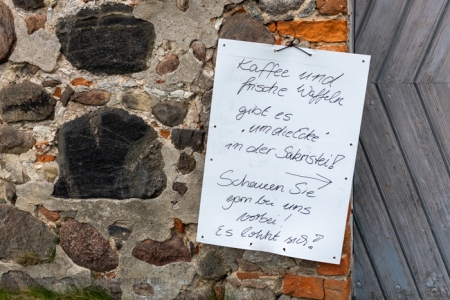 Kaffee und
frische Waffeln
gibt es
"um die Ecke"
in der Sakristei!
→
Schauen Sie
gern bei uns
vorbei!
Es lohnt sich!